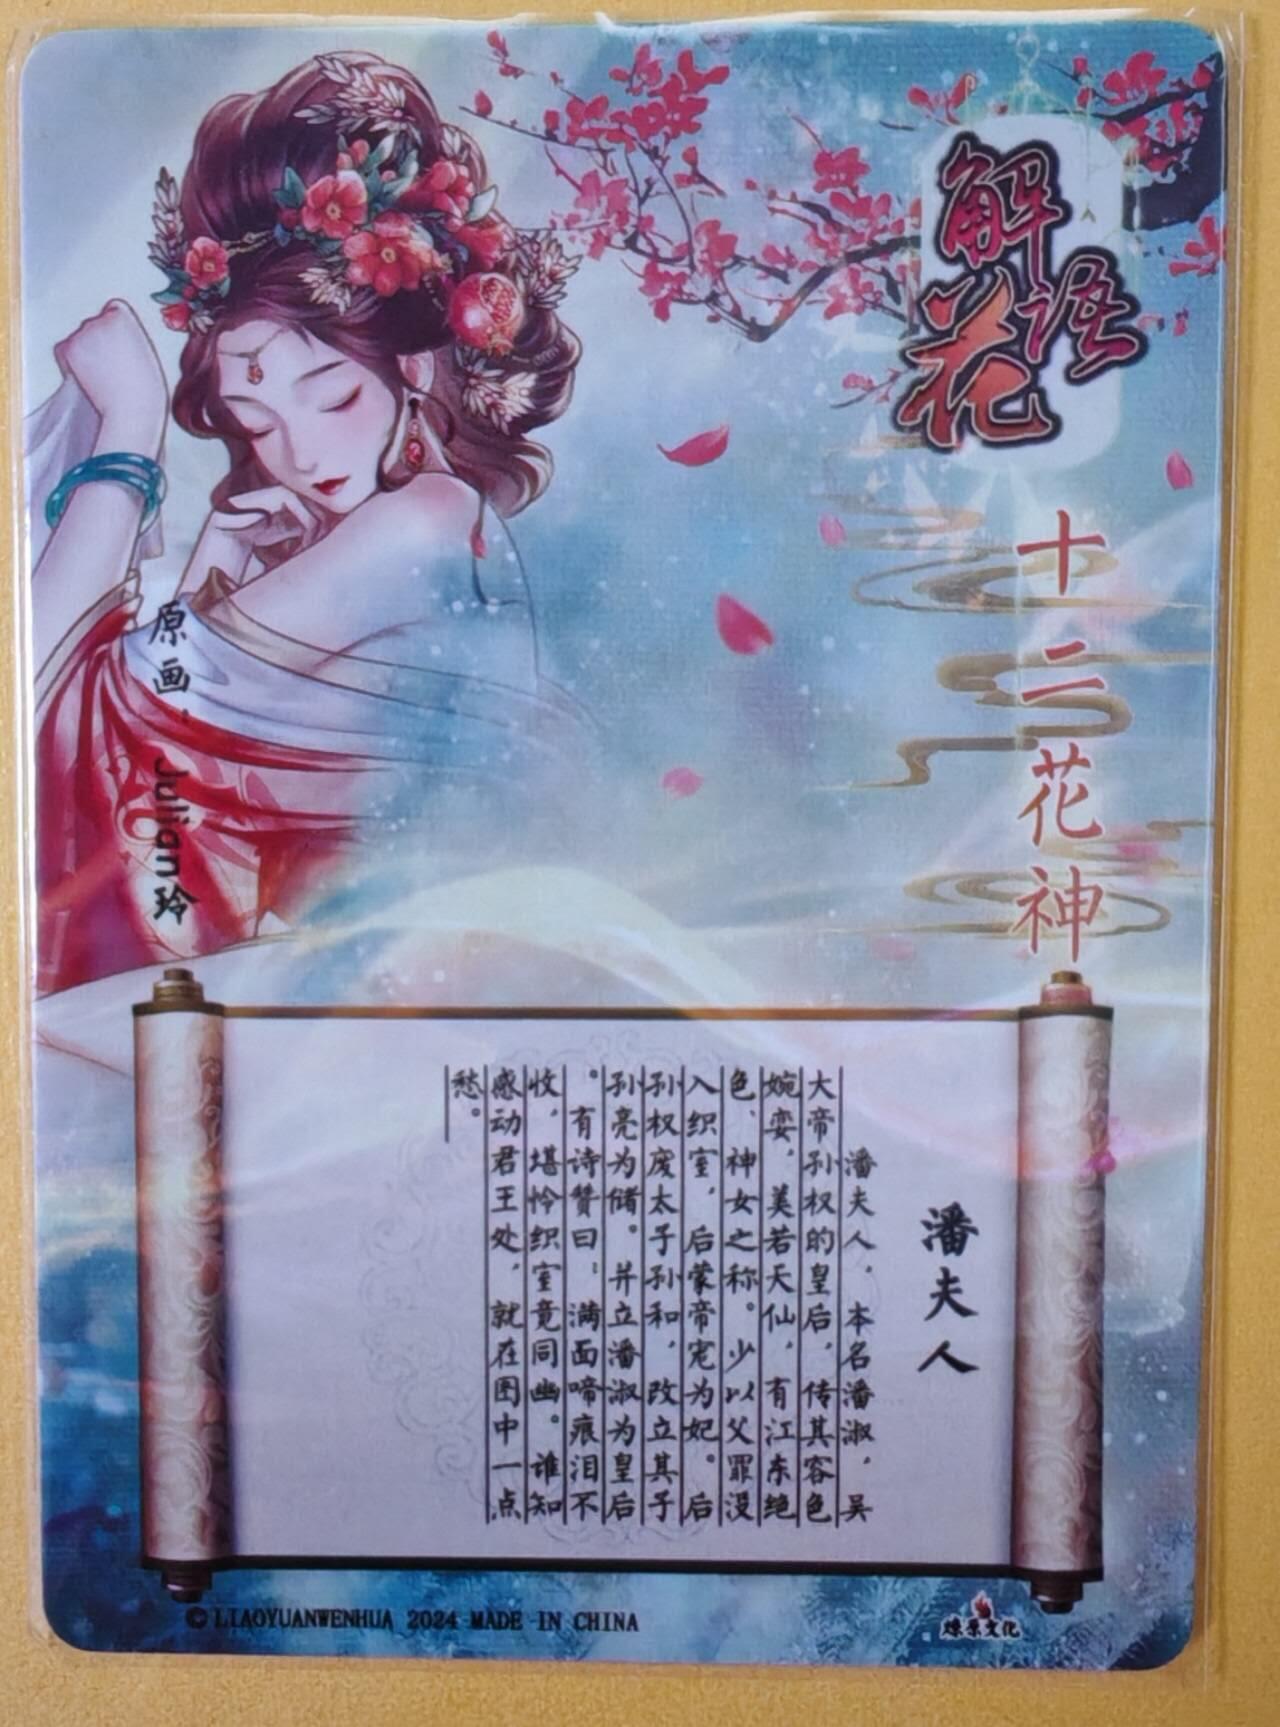 解语花
十二花神
原画：Julian玲
潘夫人
潘夫人，本名潘淑，吴
大帝孙权的皇后，传其容色
婉娈，美若天仙，有江东绝
色、神女之称。少以父罪没
入织室，后蒙帝宠为妃。后
孙权废太子孙和，改立其子
孙亮为储。并立潘淑为皇后
。有诗赞曰：满面啼痕泪不
收，堪怜织室竟同幽。谁知
感动君王处，就在图中一点
愁。
© LIAOYUANWENHUA 2024 MADE IN CHINA
燎原文化